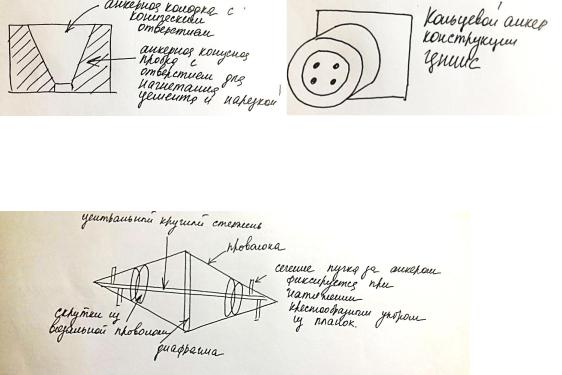 анкерная колодка с
коническим
отверстием
анкерная конусная
пробка с
отверстием для
нагнетания
цемента и нарезкой
Кольцевой анкер
конструкции
ЦНИИС
центральный круглый стержень
проволока
сечение пучка за анкером
фиксируется при
натяжении
крестообразным упором
из планок.
скрутки из
вязальной проволоки
диафрагма